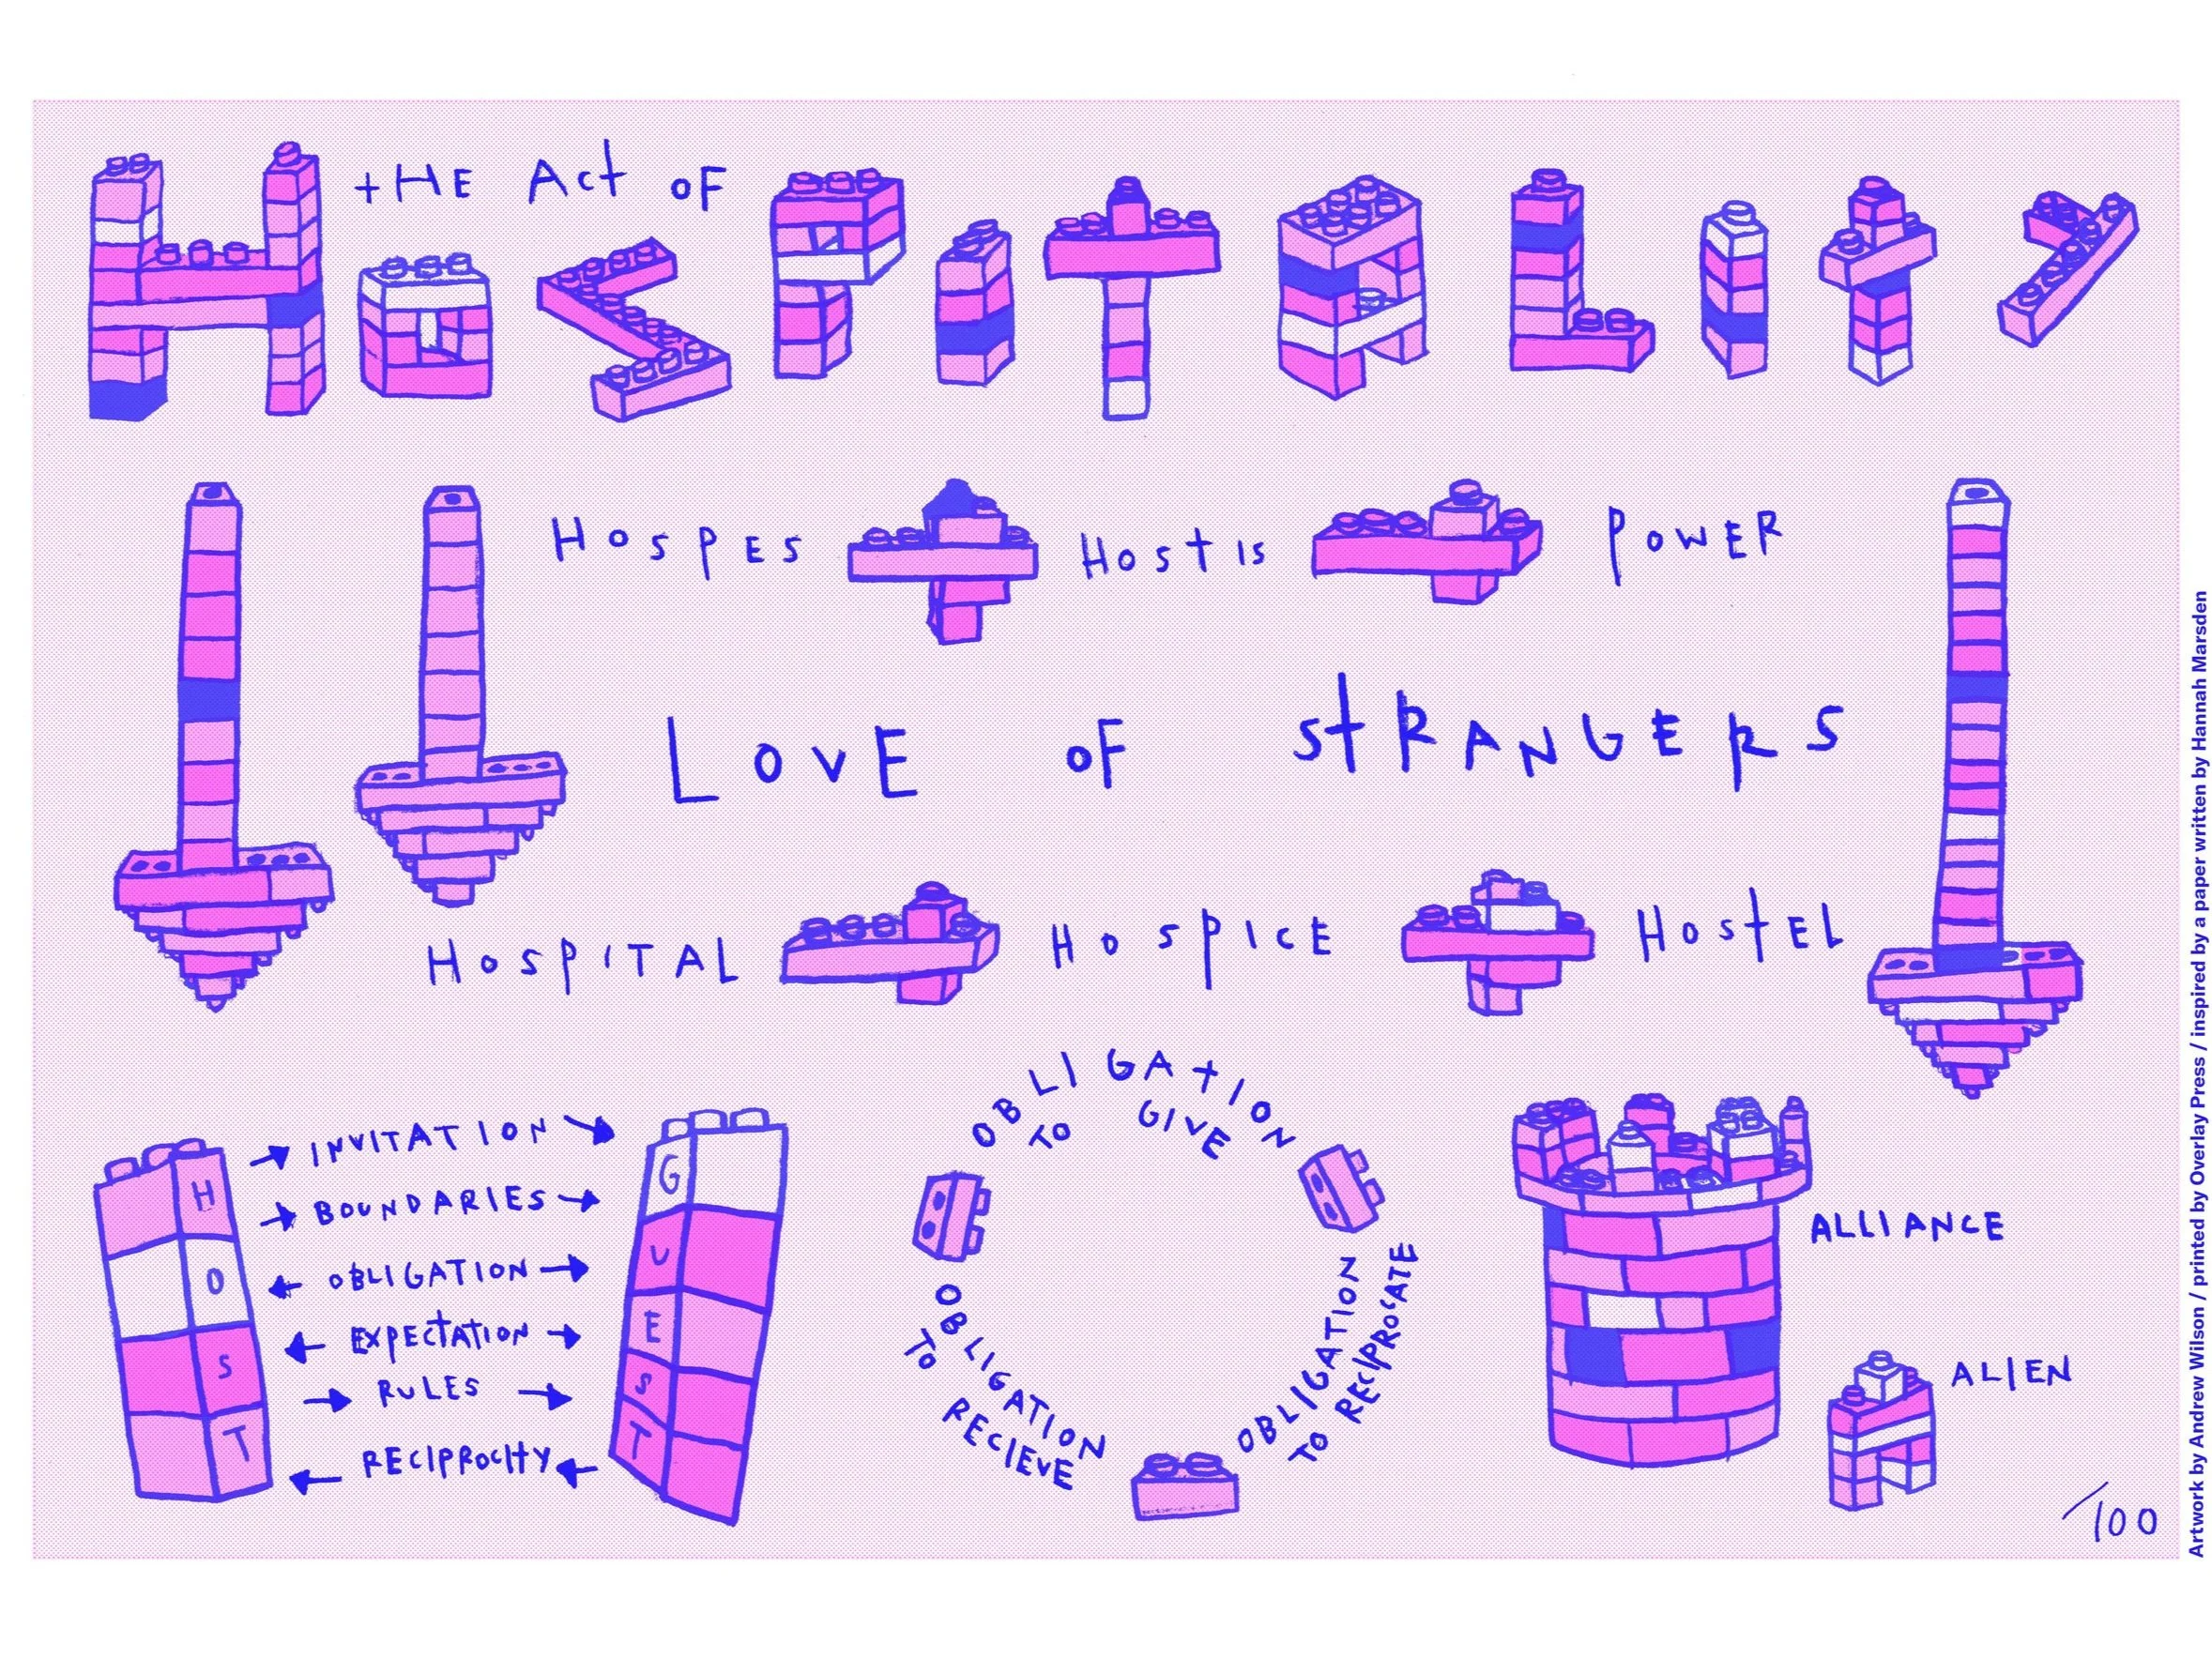 tHE Act oF
HOSPITALITY
HOSPES HOStIS POWER
LOVE OF StRANGERS
HOSPITAL HOSPICE HOStEL
HOST
INVITATION
BOUNDARIES
OBLIGATION
EXPECtATION
RULES
RECIPROCItY
GUEST
OBLIGATION
TO GIVE
OBLIGATION
TO RECIEVE
OBLIGATION
TO RECIPROCATE
ALLIANCE
ALIEN
/100
Artwork by Andrew Wilson / printed by Overlay Press / inspired by a paper written by Hannah Marsden